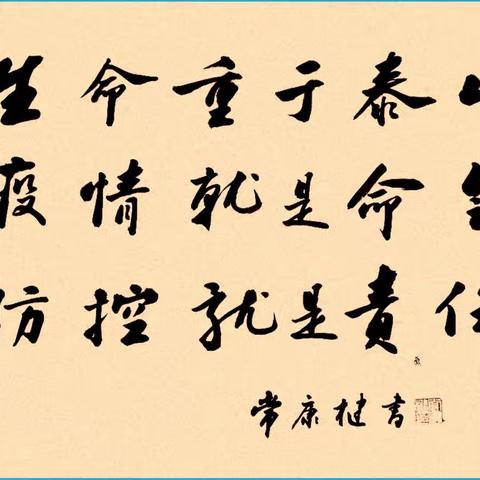 生命重于泰山
疫情就是命令
防控就是责任
常康楗书